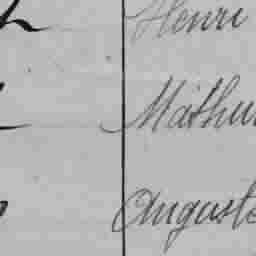 Henri
Mathu
Auguste